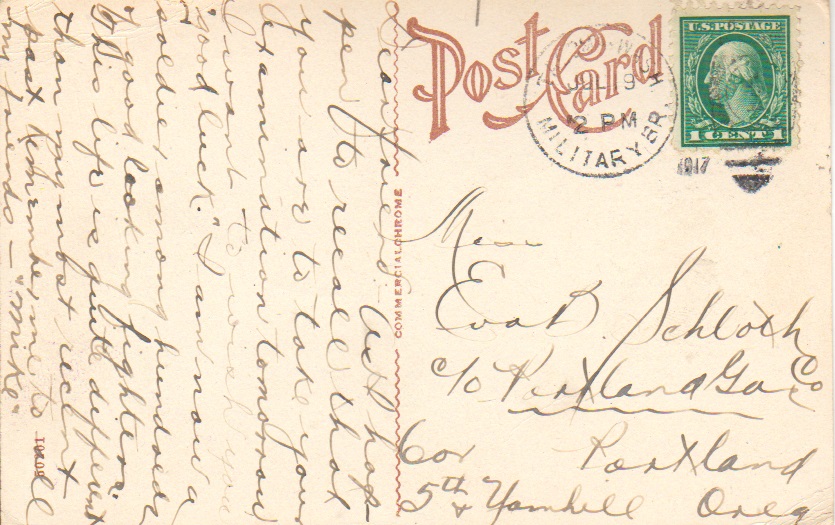 Post Card
U.S. POSTAGE
1 CENT 1
JUL 9
12 PM
MILITARY BR.
1917
COMMERCIALCHROME
Miss
Eva B. Schloth
c/o Portland Gas Co
Cor Portland
5th & Yamhill Oreg
Dear Friend. As I hap-
pen to recall that
you are to take your
examination tomorrow
I want to wish you
"good luck." I am now a
soldier among hundreds
of good looking fighters.
This life is quite different
than my most recent
past. Remember me to all
my friends — "Mike"